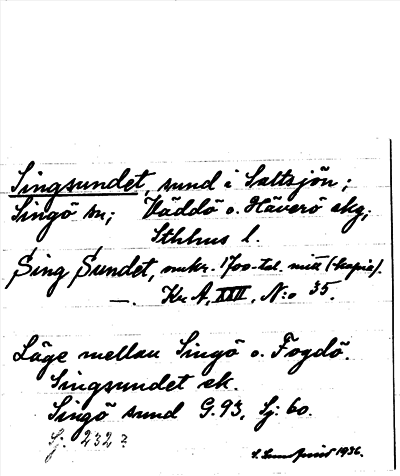 Singsundet, sund i Saltsjön;
Singö sn; Väddö o. Häverö skg;
Sthlms l.
Sing Sundet, omkr. 1700-tal. mitt (kopia).
—. Kr. A, XXII, N:o 35.
Läge mellan Singö o. Fogdö.
Singsundet ek.
Singö sund G. 93, Sj: 60.
Sj: 232?
1936.